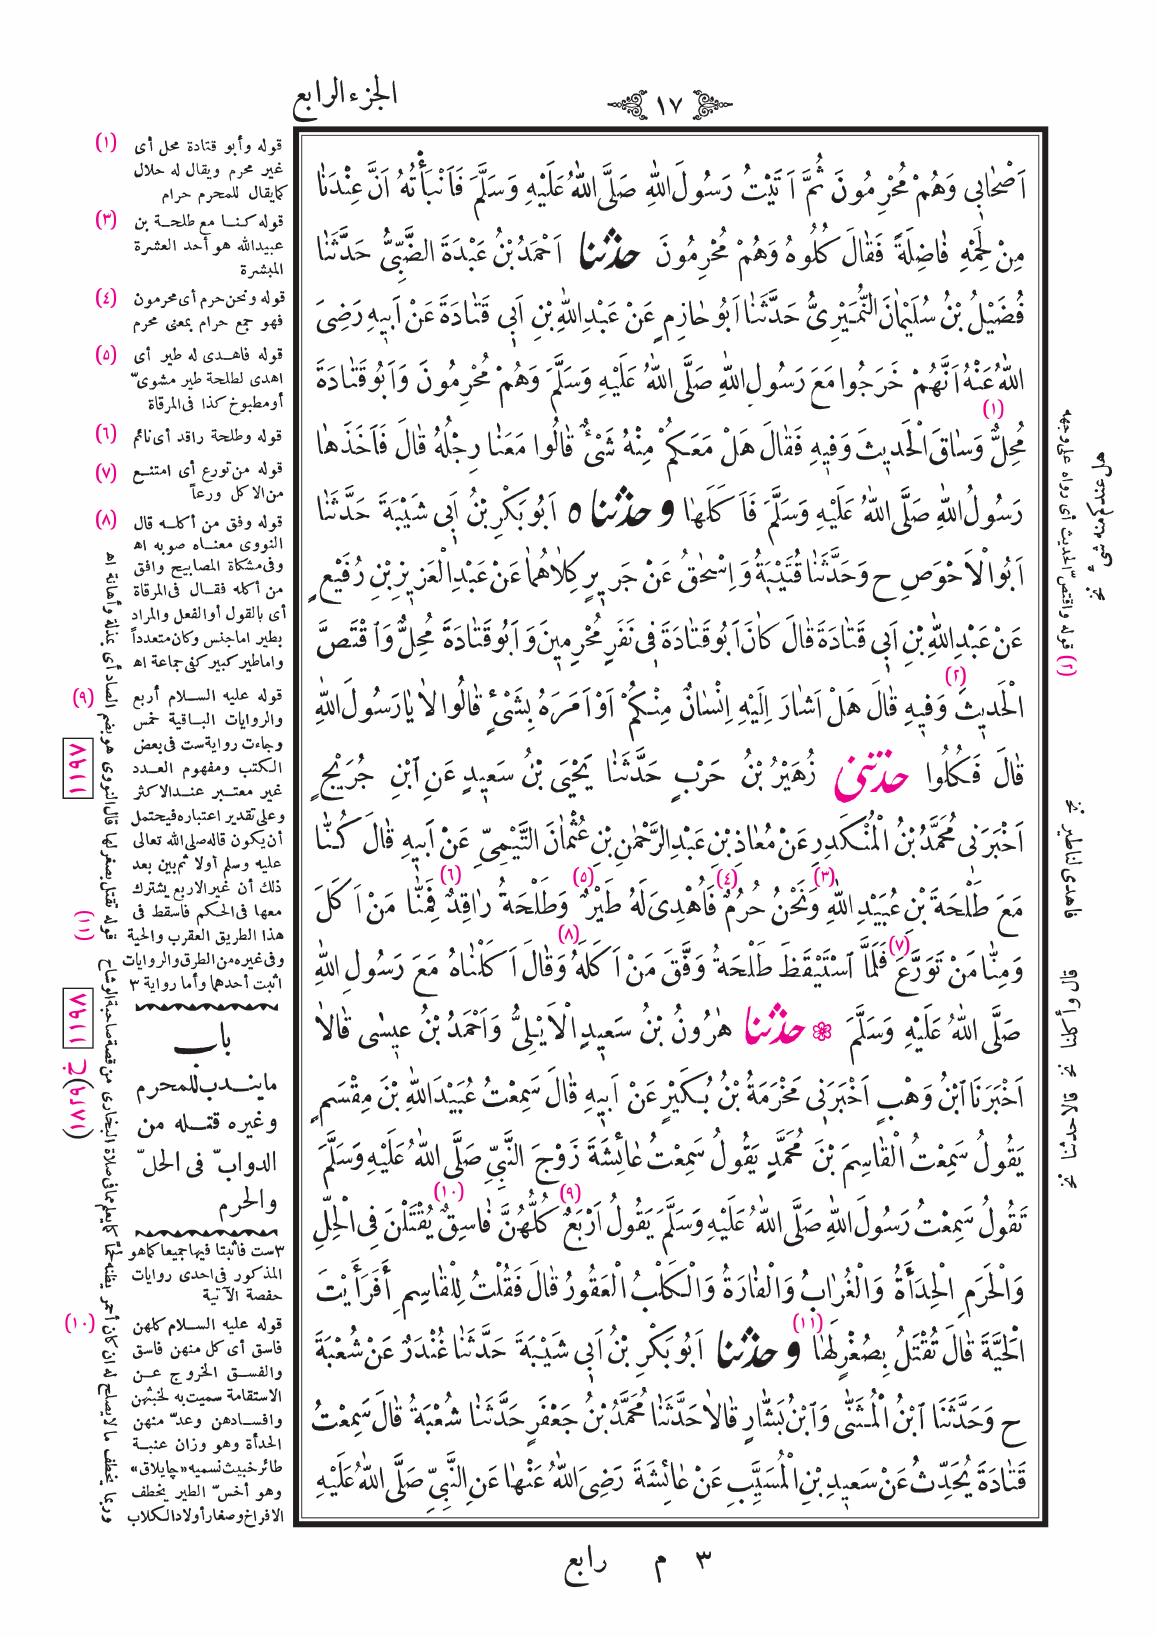 الجزء الرابع
١٧
اَصْحَابِي وَهُمْ مُحْرِمُونَ ثُمَّ اَتَيْتُ رَسُولَ اللهِ صَلَّى اللهُ عَلَيْهِ وَسَلَّمَ فَاَنْبَأْتُهُ اَنَّ عِنْدَنَا
مِنْ لَحْمِهِ فَاضِلَةً فَقَالَ كُلُوهُ وَهُمْ مُحْرِمُونَ حدثنا اَحْمَدُ بْنُ عَبْدَةَ الضَّبِّيُّ حَدَّثَنَا
فُضَيْلُ بْنُ سُلَيْمَانَ النُّمَيْرِيُّ حَدَّثَنَا اَبُو حَازِمٍ عَنْ عَبْدِ اللهِ بْنِ اَبِي قَتَادَةَ عَنْ اَبِيهِ رَضِيَ
اللهُ عَنْهُ اَنَّهُمْ خَرَجُوا مَعَ رَسُولِ اللهِ صَلَّى اللهُ عَلَيْهِ وَسَلَّمَ وَهُمْ مُحْرِمُونَ وَاَبُو قَتَادَةَ
(١)
مُحِلٌّ وَسَاقَ الْحَدِيثَ وَفِيهِ فَقَالَ هَلْ مَعَكُمْ مِنْهُ شَىْءٌ قَالُوا مَعَنَا رِجْلُهُ قَالَ فَاَخَذَهَا
رَسُولُ اللهِ صَلَّى اللهُ عَلَيْهِ وَسَلَّمَ فَاَكَلَهَا و حدثنا ٥ اَبُو بَكْرِ بْنُ اَبِي شَيْبَةَ حَدَّثَنَا
اَبُو الْاَحْوَصِ ح وَحَدَّثَنَا قُتَيْبَةُ وَاِسْحٰقُ عَنْ جَرِيرٍ كِلَاهُمَا عَنْ عَبْدِ الْعَزِيزِ بْنِ رُفَيْعٍ
عَنْ عَبْدِ اللهِ بْنِ اَبِي قَتَادَةَ قَالَ كَانَ اَبُو قَتَادَةَ فِي نَفَرٍ مُحْرِمِينَ وَاَبُو قَتَادَةَ مُحِلٌّ وَاقْتَصَّ
(٢)
الْحَدِيثَ وَفِيهِ قَالَ هَلْ اَشَارَ اِلَيْهِ اِنْسَانٌ مِنْكُمْ اَوْ اَمَرَهُ بِشَىْءٍ قَالُوا لَا يَا رَسُولَ اللهِ
قَالَ فَكُلُوا حدثنى زُهَيْرُ بْنُ حَرْبٍ حَدَّثَنَا يَحْيَى بْنُ سَعِيدٍ عَنِ ابْنِ جُرَيْجٍ
اَخْبَرَنِى مُحَمَّدُ بْنُ الْمُنْكَدِرِ عَنْ مُعَاذِ بْنِ عَبْدِ الرَّحْمٰنِ بْنِ عُثْمَانَ التَّيْمِيِّ عَنْ اَبِيهِ قَالَ كُنَّا
(٣) (٤) (٥) (٦)
مَعَ طَلْحَةَ بْنِ عُبَيْدِ اللهِ وَنَحْنُ حُرُمٌ فَاُهْدِىَ لَهُ طَيْرٌ وَطَلْحَةُ رَاقِدٌ فَمِنَّا مَنْ اَكَلَ
(٧) (٨)
وَمِنَّا مَنْ تَوَرَّعَ فَلَمَّا اسْتَيْقَظَ طَلْحَةُ وَفَّقَ مَنْ اَكَلَهُ وَقَالَ اَكَلْنَاهُ مَعَ رَسُولِ اللهِ
صَلَّى اللهُ عَلَيْهِ وَسَلَّمَ ❁ حدثنا هٰرُونُ بْنُ سَعِيدٍ الْاَيْلِيُّ وَاَحْمَدُ بْنُ عِيسٰى قَالَا
اَخْبَرَنَا ابْنُ وَهْبٍ اَخْبَرَنِى مَخْرَمَةُ بْنُ بُكَيْرٍ عَنْ اَبِيهِ قَالَ سَمِعْتُ عُبَيْدَ اللهِ بْنَ مِقْسَمٍ
يَقُولُ سَمِعْتُ الْقَاسِمَ بْنَ مُحَمَّدٍ يَقُولُ سَمِعْتُ عَائِشَةَ زَوْجَ النَّبِيِّ صَلَّى اللهُ عَلَيْهِ وَسَلَّمَ
(٩) (١٠)
تَقُولُ سَمِعْتُ رَسُولَ اللهِ صَلَّى اللهُ عَلَيْهِ وَسَلَّمَ يَقُولُ اَرْبَعٌ كُلُّهُنَّ فَاسِقٌ يُقْتَلْنَ فِى الْحِلِّ
وَالْحَرَمِ الْحِدَأَةُ وَالْغُرَابُ وَالْفَارَةُ وَالْكَلْبُ الْعَقُورُ قَالَ فَقُلْتُ لِلْقَاسِمِ أَفَرَأَيْتَ
(١١)
الْحَيَّةَ قَالَ تُقْتَلُ بِصُغْرٍ لَهَا و حدثنا اَبُو بَكْرِ بْنُ اَبِي شَيْبَةَ حَدَّثَنَا غُنْدَرٌ عَنْ شُعْبَةَ
ح وَحَدَّثَنَا ابْنُ الْمُثَنَّى وَابْنُ بَشَّارٍ قَالَا حَدَّثَنَا مُحَمَّدُ بْنُ جَعْفَرٍ حَدَّثَنَا شُعْبَةُ قَالَ سَمِعْتُ
قَتَادَةَ يُحَدِّثُ عَنْ سَعِيدِ بْنِ الْمُسَيَّبِ عَنْ عَائِشَةَ رَضِىَ اللهُ عَنْهَا عَنِ النَّبِيِّ صَلَّى اللهُ عَلَيْهِ
(١) قوله وأبو قتادة محل أى
غير محرم ويقال له حلال
كما يقال للمحرم حرام
(٣) قوله كنا مع طلحة بن
عبيدالله هو أحد العشرة
المبشرة
(٤) قوله ونحن حرم أى محرمون
فهو جمع حرام بمعنى محرم
(٥) قوله فاهدى له طير أى
اهدى لطلحة طير مشوىّ
أو مطبوخ كذا فى المرقاة
(٦) قوله وطلحة راقد أى نائم
(٧) قوله من تورع أى امتنع
من الاكل ورعاً
(٨) قوله وفق من أكله قال
النووى معناه صوبه اه
وفى مشكاة المصابيح وافق
من أكله فقال فى المرقاة
أى بالقول أو الفعل والمراد
بطير اما جنس وكان متعدداً
واما طير كبير كفى جماعة اه
(٩) قوله عليه السلام أربع
والروايات الباقية خمس
وجاءت رواية ست فى بعض
الكتب ومفهوم العدد
غير معتبر عند الاكثر
وعلى تقدير اعتباره فيحتمل
أن يكون قاله صلى الله تعالى
عليه وسلم أولا ثم بين بعد
ذلك أن غير الاربع يشترك
معها فى الحكم فأسقط فى
هذا الطريق العقرب والحية
وفى غيره من الطرق والروايات
اثبت أحدها وأما رواية ٣
باب
ما يندب للمحرم
وغيره قتله من
الدوابّ فى الحلّ
والحرم
٣ ست فأثبتا فيها جميعا كما هو
المذكور فى احدى روايات
حفصة الآتية
(١٠) قوله عليه السلام كلهن
فاسق أى كل منهن فاسق
والفسق الخروج عن
الاستقامة سميت به لخبثهن
وافسادهن وعدّ منهن
الحدأة وهو وزان عنبة
طائر خبيث نسميه «چايلاق»
وهو أخسّ الطير يخطف
الافراخ وصغار أولاد الكلاب
وربما يخطف ما لا يصلح له ان كان أحمر يظنه لحما كما يعلم مما فى صلاة البخارى من قصة صاحبة الوشاح
(١١) قوله تقتل بصغر لها قال النووى هو بضم الصاد أى بمذلة وأهانة اه
١١٩٧
١١٩٨
خ (١٨٢٩)
هل عندكم منه شئ نخ
(٢) قوله واقتصّ الحديث أى رواه على وجهه
فاهدى لنا طير نخ
قال وأكلنا نخ
قالا حدثنا نخ
٣ م رابع